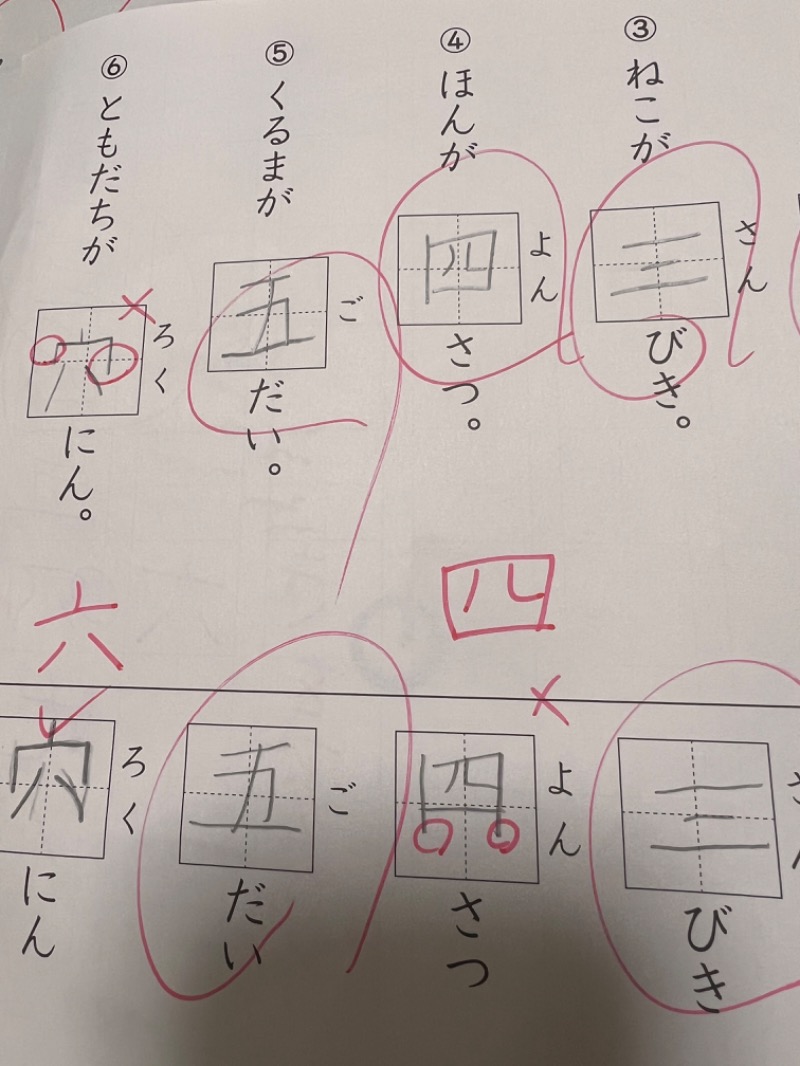 ③ねこが三びき。
さん
④ほんが四さつ。
よん
⑤くるまが五だい。
ご
⑥ともだちが穴にん。
ろく
四
六
三びき
四さつ
よん
五だい
ご
穴にん
ろく